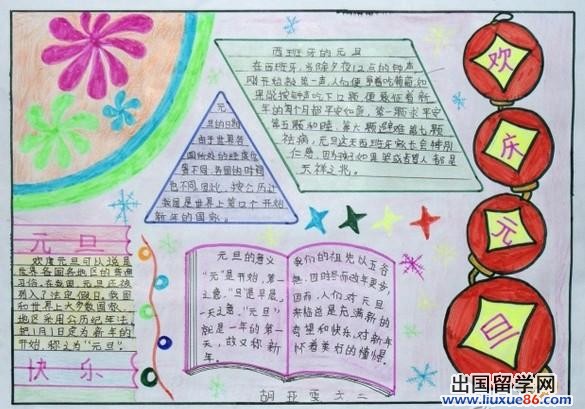 西班牙的元旦
在西班牙,当除夕夜12点的钟声
刚开始敲第一声,人们便争着吃葡萄,如
果能按钟声吃下12颗,便象征着新
年的每个月都平安如意,第一颗求平安
第五颗和睦,第六颗避难第七颗
祛病,元旦这天西班牙家长会特别
仁慈,因为孩如果哭或者骂人都是
不祥之兆。
元
旦的日期
由于世界各
国所处的经度位
置不同,各国的时间
也不同,因此,按公历计
我国是世界上第12个开始
新年的国家。
元旦
欢度元旦可以说是
世界各国各地区的普遍
习俗,在我国,元旦还被
列入了法定假日。我国
和世界上大多数国家
地区采用公历纪年法
把1月1日定为新年的
开始,称之为“元旦”。
快乐
元旦的意义
“元”是开始,第一
之意,“旦”是早晨,
一天之意,“元旦”
就是一年的第一
天,故又称新
年。
我们的祖先以五谷
四时节而改年更岁
因而,人们对元旦
来临总是充满新的
希望和快乐,对新年
怀着美好的憧憬。
欢
庆
元
旦
胡亚雯 六二
出国留学网
www.liuxue86.com